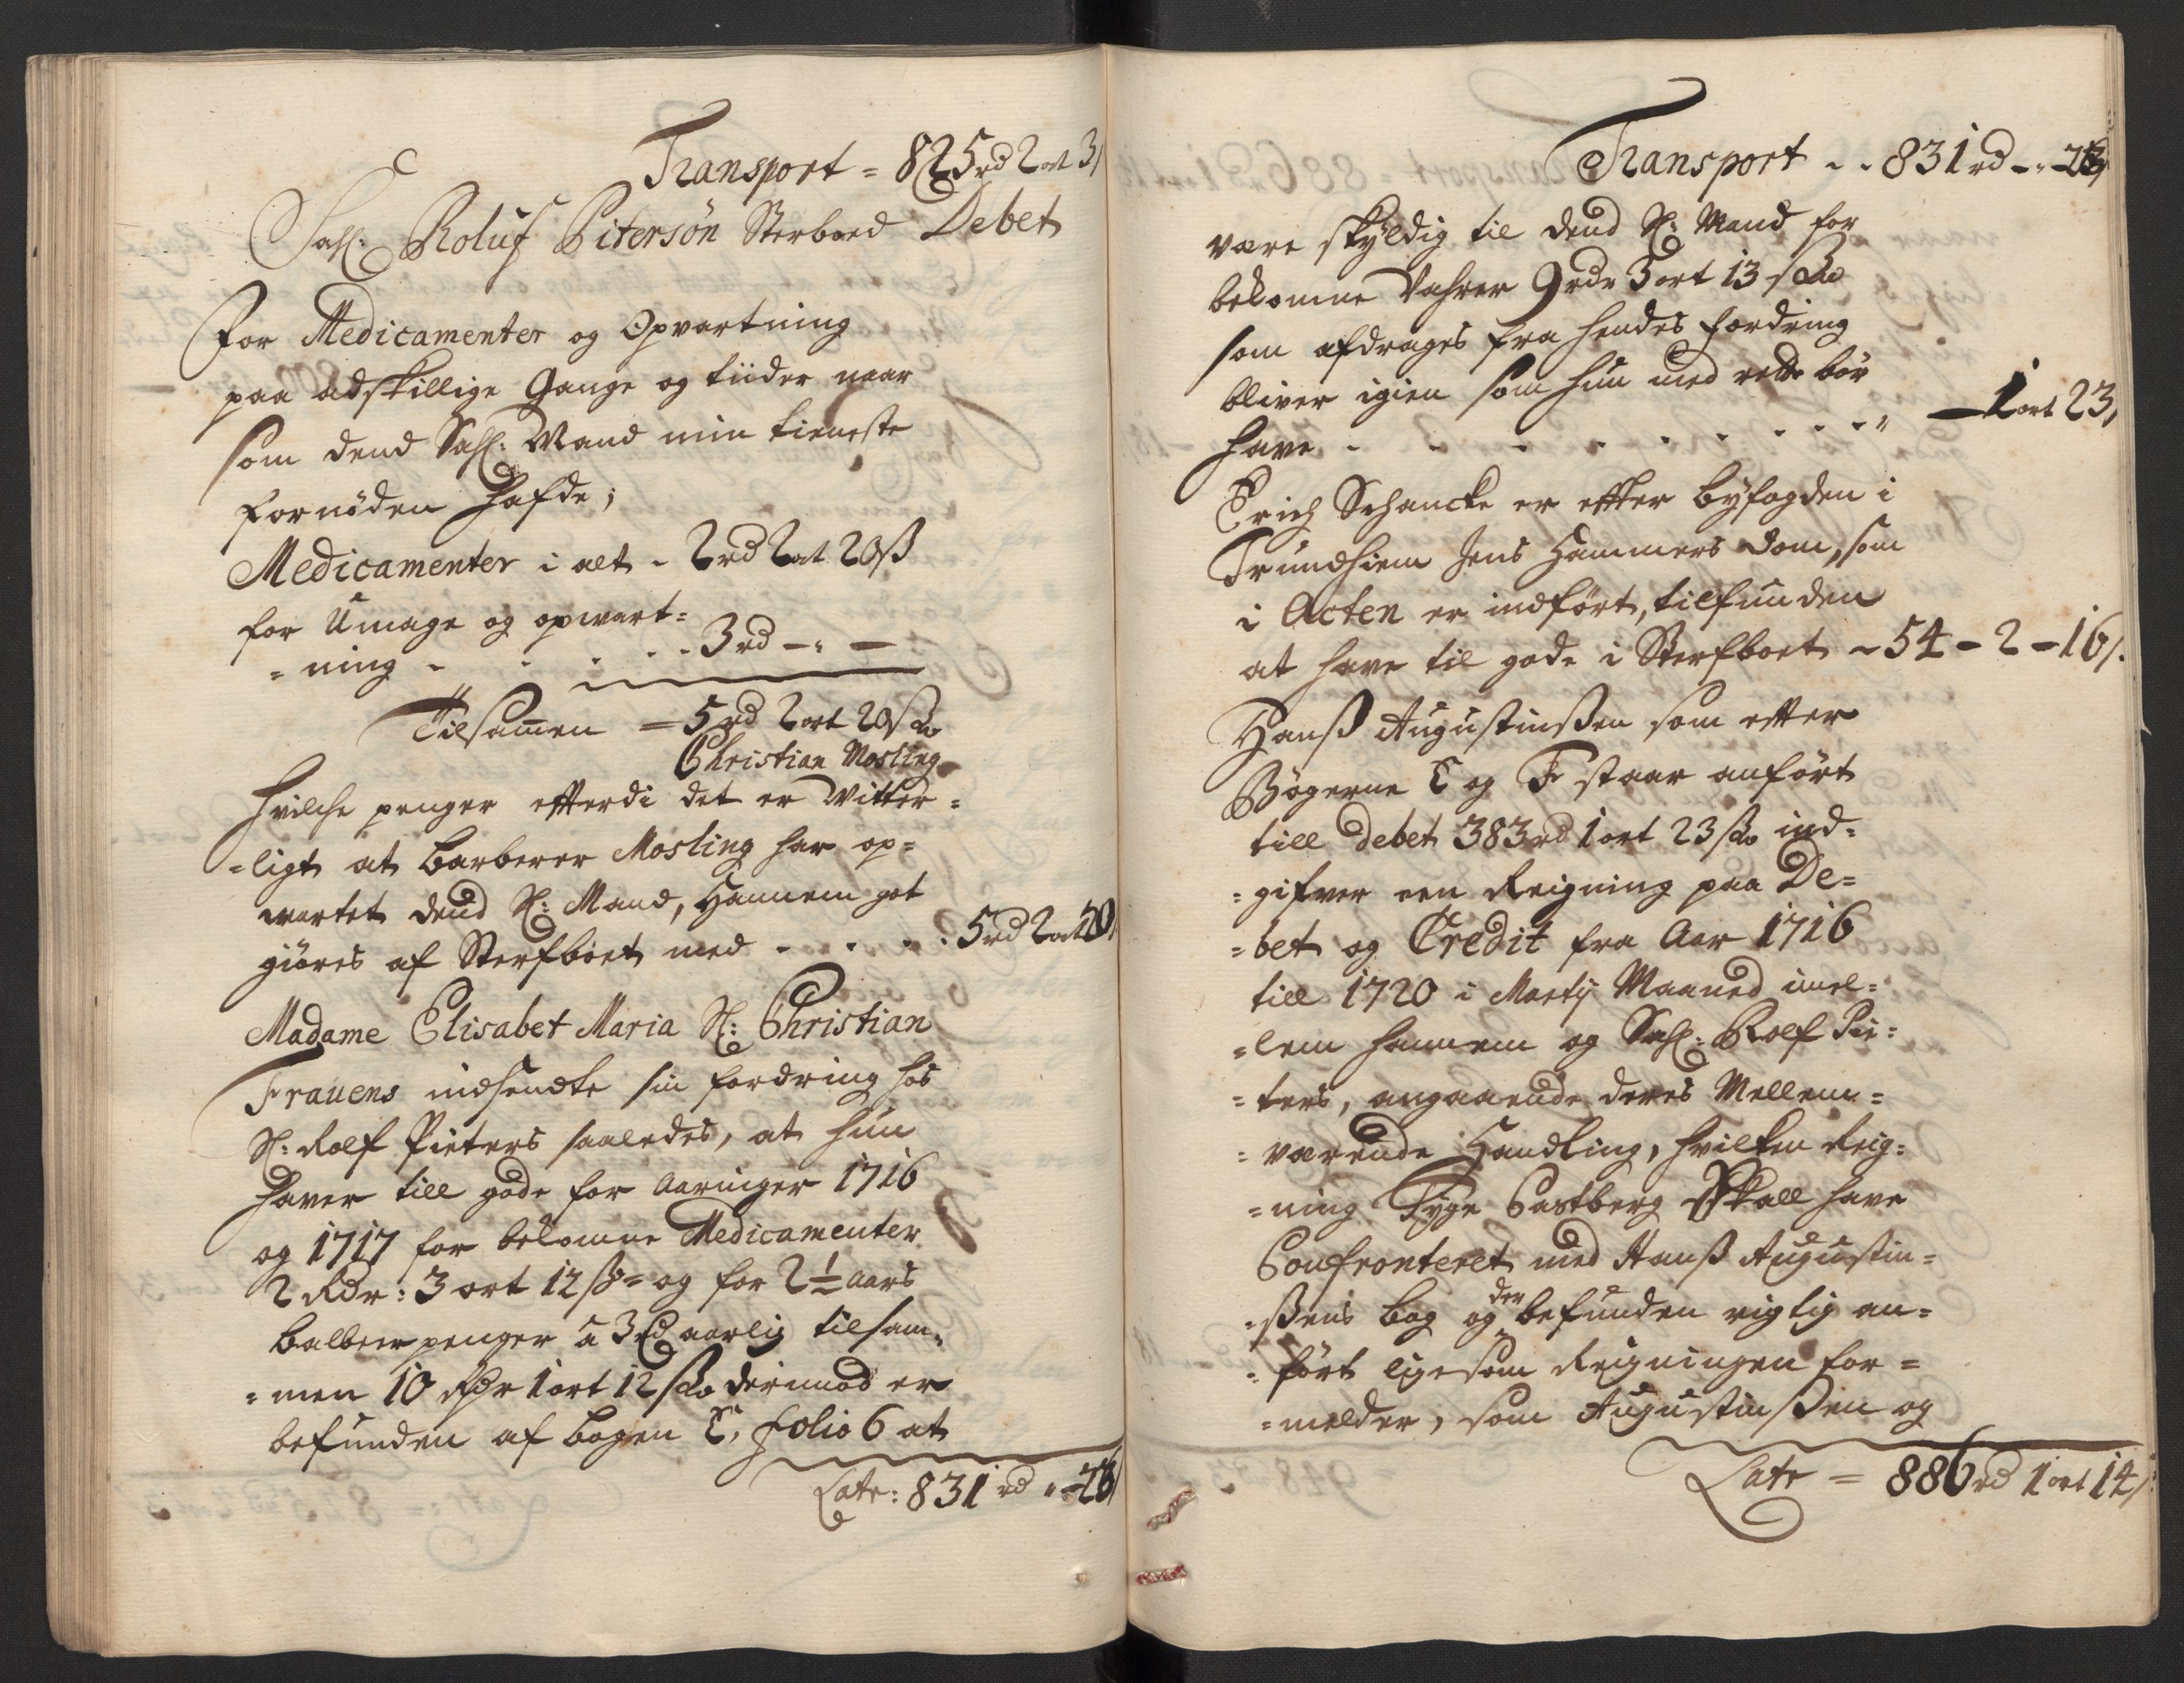 Transport = 825 rd 2 ort 3 ß
Sahl: Roluf Pitersøn Sterboed Debet
For Medicamenter og Opvartning
paa adskillige Gange og tiider naar
som dend Sahl: Mand min tieneste
fornöden hafde;
Medicamenter i alt - 2 rd 2 ort 20 ß
for Umage og opwart=
=ning - - - - - 3 rd - " -
Tilsam̄en = 5 rd 2 ort 20 ß
Christian Mosling
hvilche penger efterdi det er vitter=
=ligt at Barberer Mosling har op=
wartet dend Sl: Mand, Hannem got
giöres af Sterfboet med - - - - 5 rd 2 ort 20
Madame Elisabet Maria Sl: Christian
Frauens indsendte sin fordring hos
Sl: Rolf Pieters saaledes, at hun
haver till gode for Aaringer 1716
og 1717 for bekomne Medicamenter
2 Rdr: 3 ort 12 ß = og for 2½ aars
Balbeerpenger à 3 rd aarlig tilsam=
=men 10 Rdr 1 ort 12 ß derimod er
befunden af Bogen E, folio 6 at
Latr: 831 rd " - 23
Transport - - 831 rd - " - 23
være skyldig til dend Sl: Mand for
bekomne Vahrer 9 rdr 3 ort 13 ß
som afdrages fra hendes fordring
bliver igien som hun med rette bör
have - - - - - - - - - " - 1 ort 23,
Erich Schancke er efter byfogden i
Trundhiem Jens Hammers dom, som
i Acten er indfört, tilfunden
at have til gode i Sterfboet - 54 - 2 - 16 ß.
Hanß Augustinßen som efter
Bögerne E og F staar anfört
till Debet 383 rd 1 ort 23 ß ind=
=gifver een Reigning paa De=
=bet og Credit fra Aar 1716
till 1720 i Martij Maaned imel=
=lem hannem og Sahl: Rolf Pie=
=ters, angaaende deres Mellem=
=værende Handling, hvilken Reig=
=ning Tyge Castberg Skall have
Confronteret med Hanß Augustin=
=ßens bog og der befunden rigtig an=
=fört ligesom Reigningen for=
=melder, som Augustinßen og
Latr = 886 rd 1 ort 14 ß